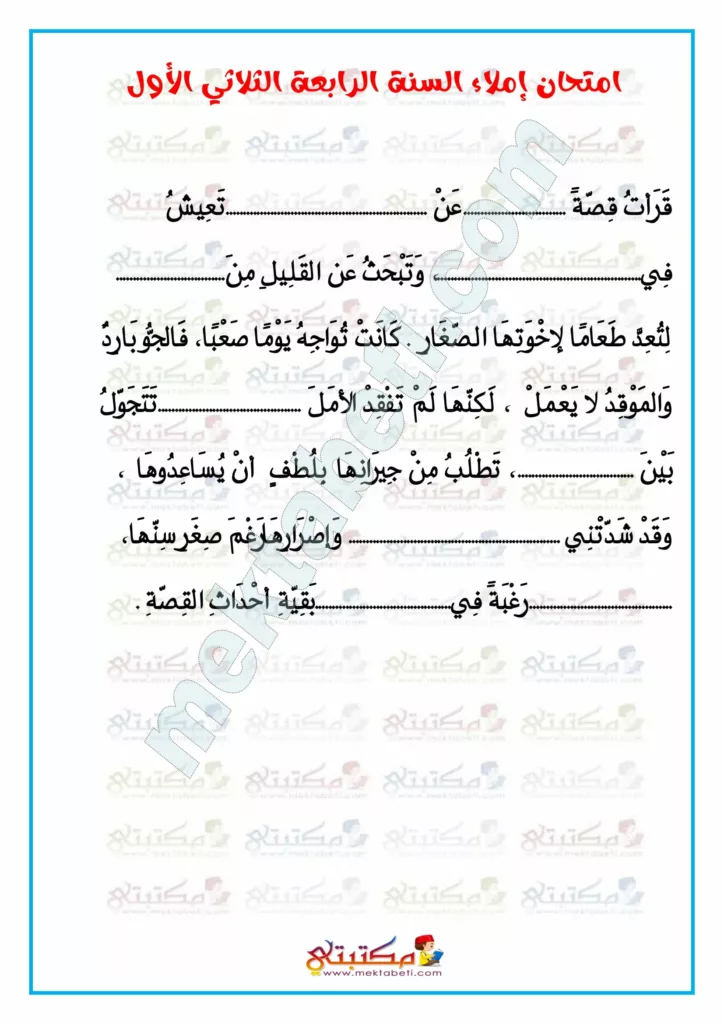 امتحان إملاء السنة الرابعة الثلاثي الأول
قَرَأتُ قِصّةً ..............................عَنْ ..........................................................تَعِيشُ
فِي..........................................................، وَتَبْحَثُ عَن القَلِيلِ مِنَ................................
لِتُعِدَّ طَعَامًا لإخْوَتِهَا الصّغَار . كَانَتْ تُوَاجِهُ يَوْمًا صَعْبًا، فَالجوُّ بَاردٌ
وَالمَوْقِدُ لا يَعْمَلْ ، لَكِنّهَا لَمْ تَفْقِدْ الأمَلَ ..........................................تَتَجَوّلُ
بَيْنَ ..................................، تَطْلُبُ مِنْ جيرَانِهَا بِلُطْفٍ أنْ يُسَاعِدُوهَا ،
وَقَدْ شَدّتْنِي ............................................................. وَإصْرَارهَا رَغْمَ صِغَر سِنّهَا،
..........................................رَغْبَةً فِي........................................بَقِيّةِ أحْدَاثِ القِصّةِ .
مكتبتي
www.mektabeti.com
mektabeti.com